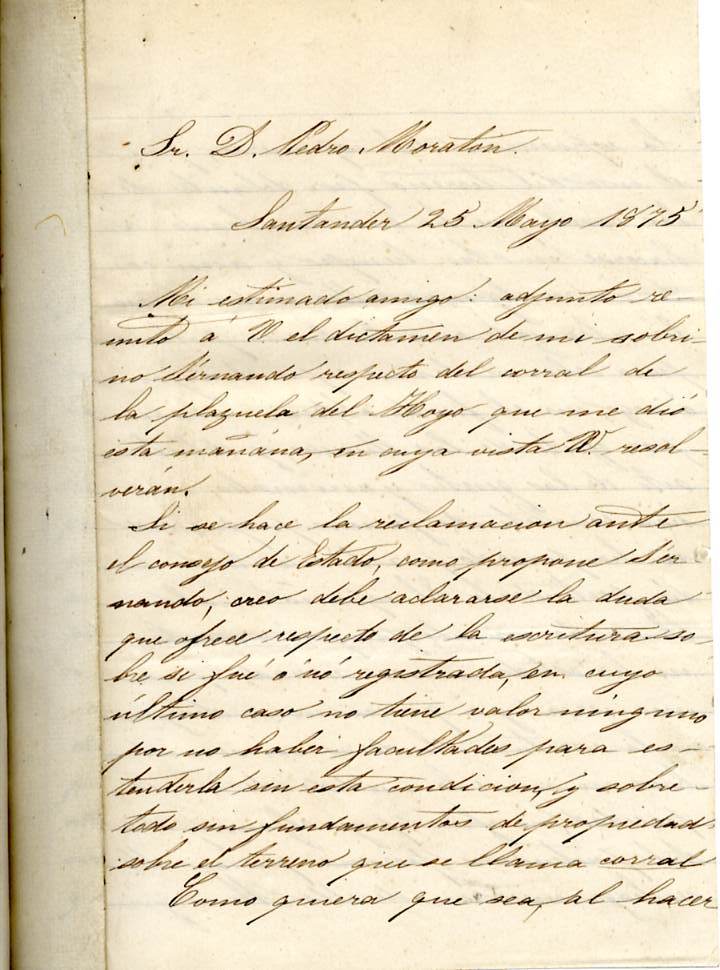 Sr. D. Pedro Moratón.
Santander 25 Mayo 1875
Mi estimado amigo: adjunto re-
mito á V el dictamen de mi sobri-
no Fernando respecto del corral de
la plazuela del Hoyo que me dió
esta mañana, en cuya vista V. resol-
verán.
Si se hace la reclamacion ante
el consejo de Estado, como propone Fer
nando, creo debe aclararse la duda
que ofrece respecto de la escritura so-
bre si fué ó nó registrada, en cuyo
último caso no tiene valor ninguno
por no haber facultades para es-
tenderla sin esta condicion, y sobre-
todo sin fundamentos de propiedad
sobre el terreno que se llama corral
Como quiera que sea, al hacer